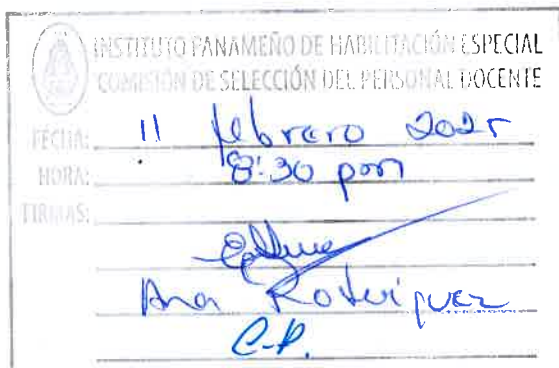 INSTITUTO PANAMEÑO DE HABILITACIÓN ESPECIAL
COMISIÓN DE SELECCIÓN DEL PERSONAL DOCENTE
FECHA: 11 febrero 2025
HORA: 8:30 pm
FIRMAS:
Ana Rodriguez
C.P.